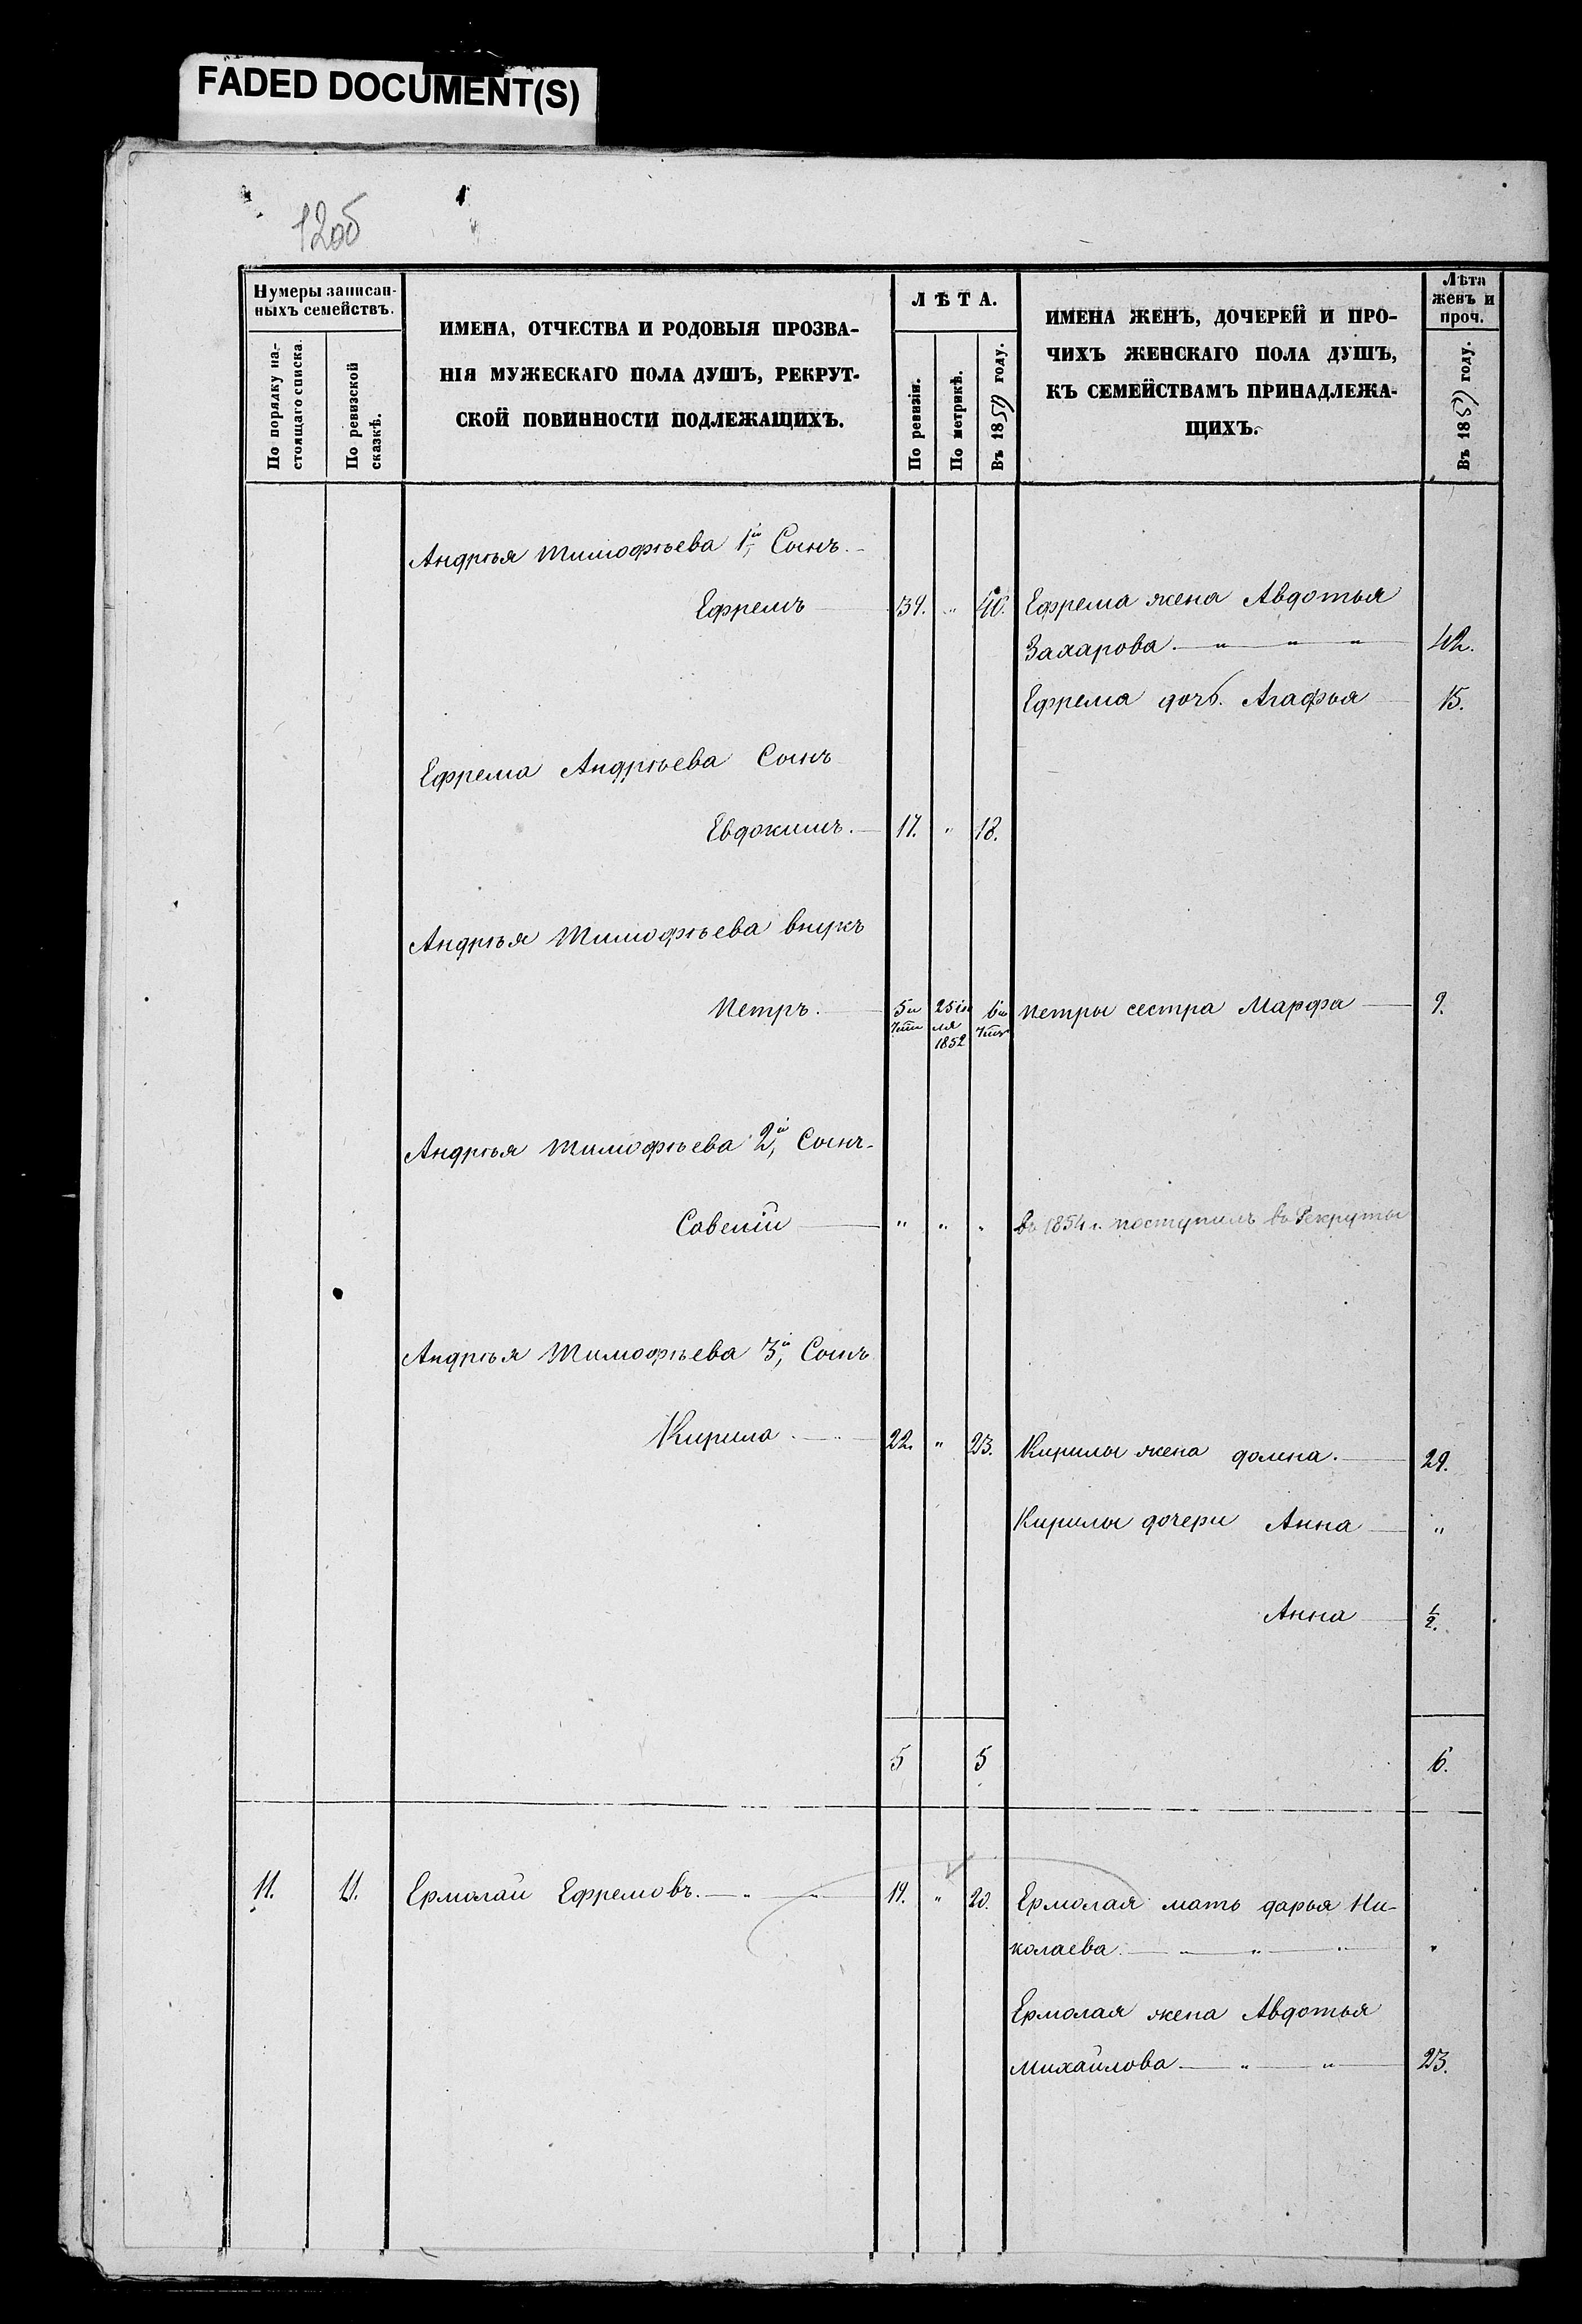 FADED DOCUMENT(S)
12об
Нумеры записан-
ныхъ семействъ.
По порядку на-
стоящаго списка.
По ревизской
сказкѣ.
ИМЕНА, ОТЧЕСТВА И РОДОВЫЯ ПРОЗВА-
НІЯ МУЖЕСКАГО ПОЛА ДУШЪ, РЕКРУТ-
СКОЙ ПОВИННОСТИ ПОДЛЕЖАЩИХЪ.
ЛѢТА.
По ревизіи.
По метрикѣ.
Въ 1859 году.
ИМЕНА ЖЕНЪ, ДОЧЕРЕЙ И ПРО-
ЧИХЪ ЖЕНСКАГО ПОЛА ДУШЪ,
КЪ СЕМЕЙСТВАМЪ ПРИНАДЛЕЖА-
ЩИХЪ.
Лѣта
женъ и
проч.
Въ 1859 году.
Андрѣя Тимофѣева 1й, Сынъ.
Ефремъ 39. " 40. Ефрема жена Авдотья
Захарова. " " " 42.
Ефрема дочь. Агафья 15.
Ефрема Андрѣева Сынъ
Евдокимъ. 17. " 18.
Андрѣя Тимофѣева внукъ
Петръ. 5и 25 ію 6и Петры сестра Марфа 9.
ля
1852
Андрѣя Тимофѣева 2й, Сынъ
Савелій " " " въ 1854 г. поступилъ въ Рекруты
Андрѣя Тимофѣева 3й, Сынъ
Кирила 22. " 23. Кирилы жена домна. 29.
Кирилы дочери Анна "
Анна ½.
5 5 6.
11. 11. Ермолай Ефремовъ. " " 19. " 20. Ермолая мать дарья Ни-
колаева " " " "
Ермолая жена Авдотья
Михайлова " " 23.